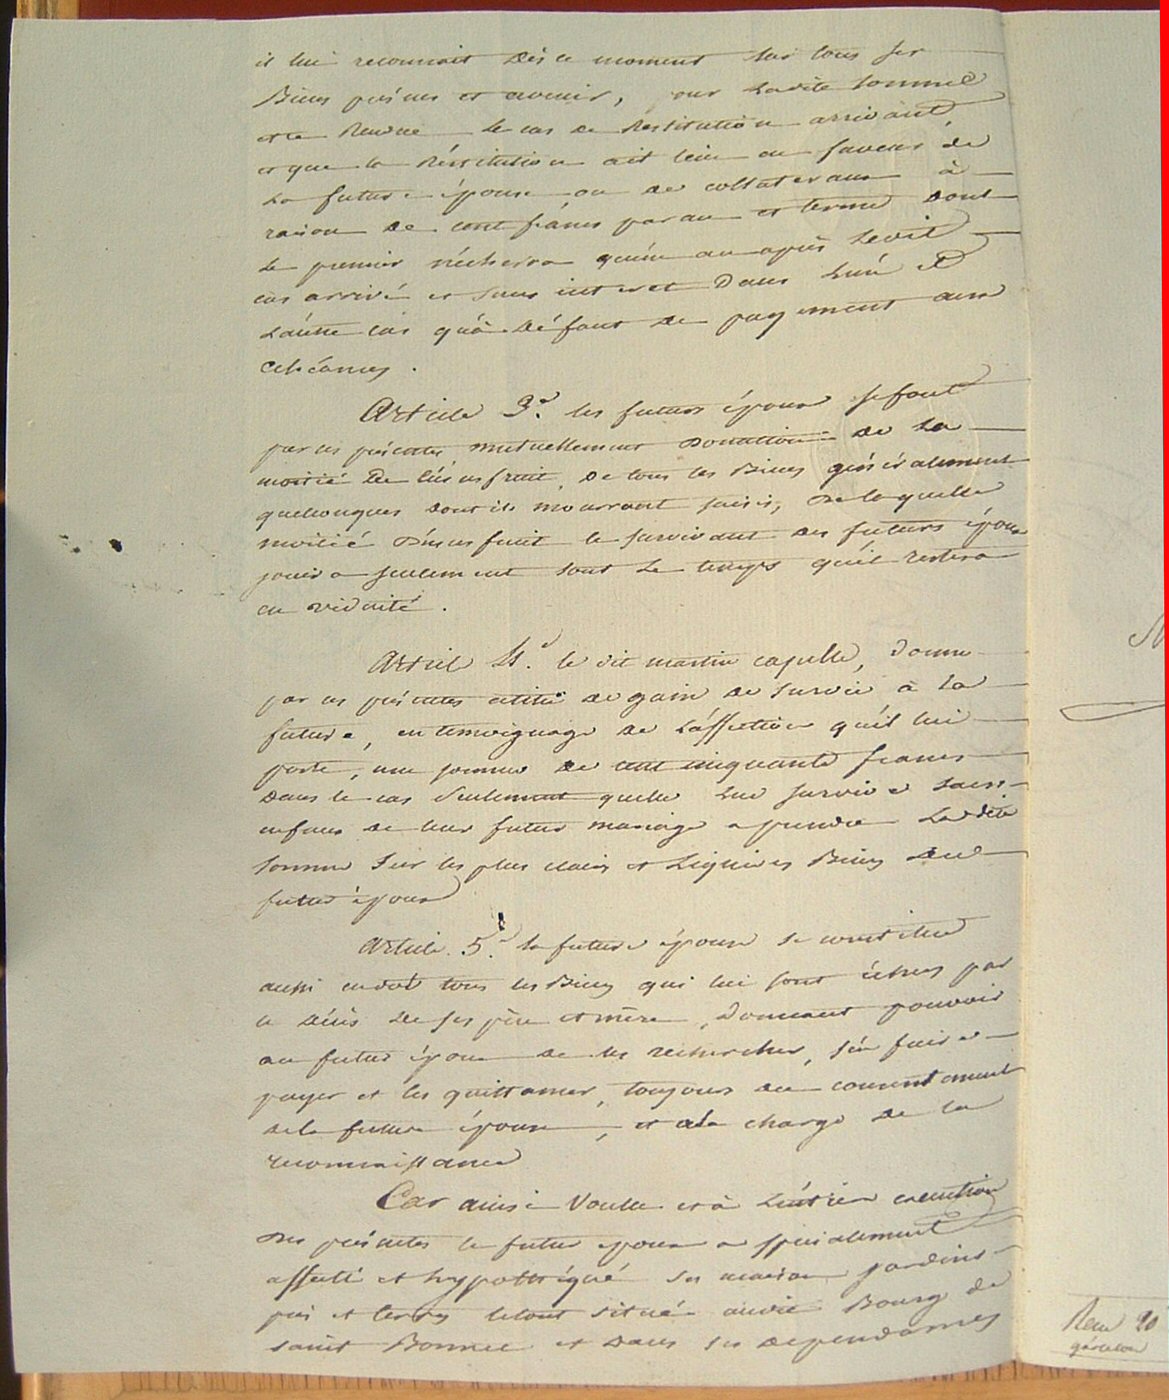 il lui reconnait dès ce moment sur tous ses
Biens présens et avenir, pour Ladite Somme
et a Rendre le cas de Restitution arrivant,
et que la Réstitution ait lieu en faveur de
La future épouse ou de collateraux à
raison de cent francs par an et terme dont
Le premier n'écherra qu'un an après Ledit
cas arrivé et sans interet Dans L'un et
L'autre cas qu'à Défaut de payement aux
echéances.
Article 3.e les futurs époux se font
par ces présentes mutuellement Donation de La
moitié De l'usufruit, De tous les Biens généralement
quelconques dont ils mourront saisis, De laquelle
moitié D'usufruit le survivant des futurs époux
jouira seulement tant Le temps qu'il restera
en viduité.
Article 4.e le dit martin capelle, donne
par ces présentes a titre de gain de survie à La
future, en temoignage de L'affection qu'il lui
porte, une somme de cent cinquante francs
Dans le cas Seulement quelle Lui survive Sans
enfans de leur futur mariage a prendre Ladite
Somme Sur les plus clairs et Liquides Biens du
futur époux
Article 5.e la future épouse se constitue
aussi en dot tous les Biens qui lui sont échus par
le Décès De ses père et mère, Donnant pouvoir
au futur époux de les rechercher, s'en faire
payer et les quittancer, toujours du consentement
de la future épouse, et a la charge de la
reconnaissance
Car ainsi Voulu et à L'entière exécution
Des présentes le futur epoux a spécialement
affecté et hypothéqué ses maison jardins
prés et terres le tout situé au dit Bourg de
saint Bonnet et Dans ses dependances